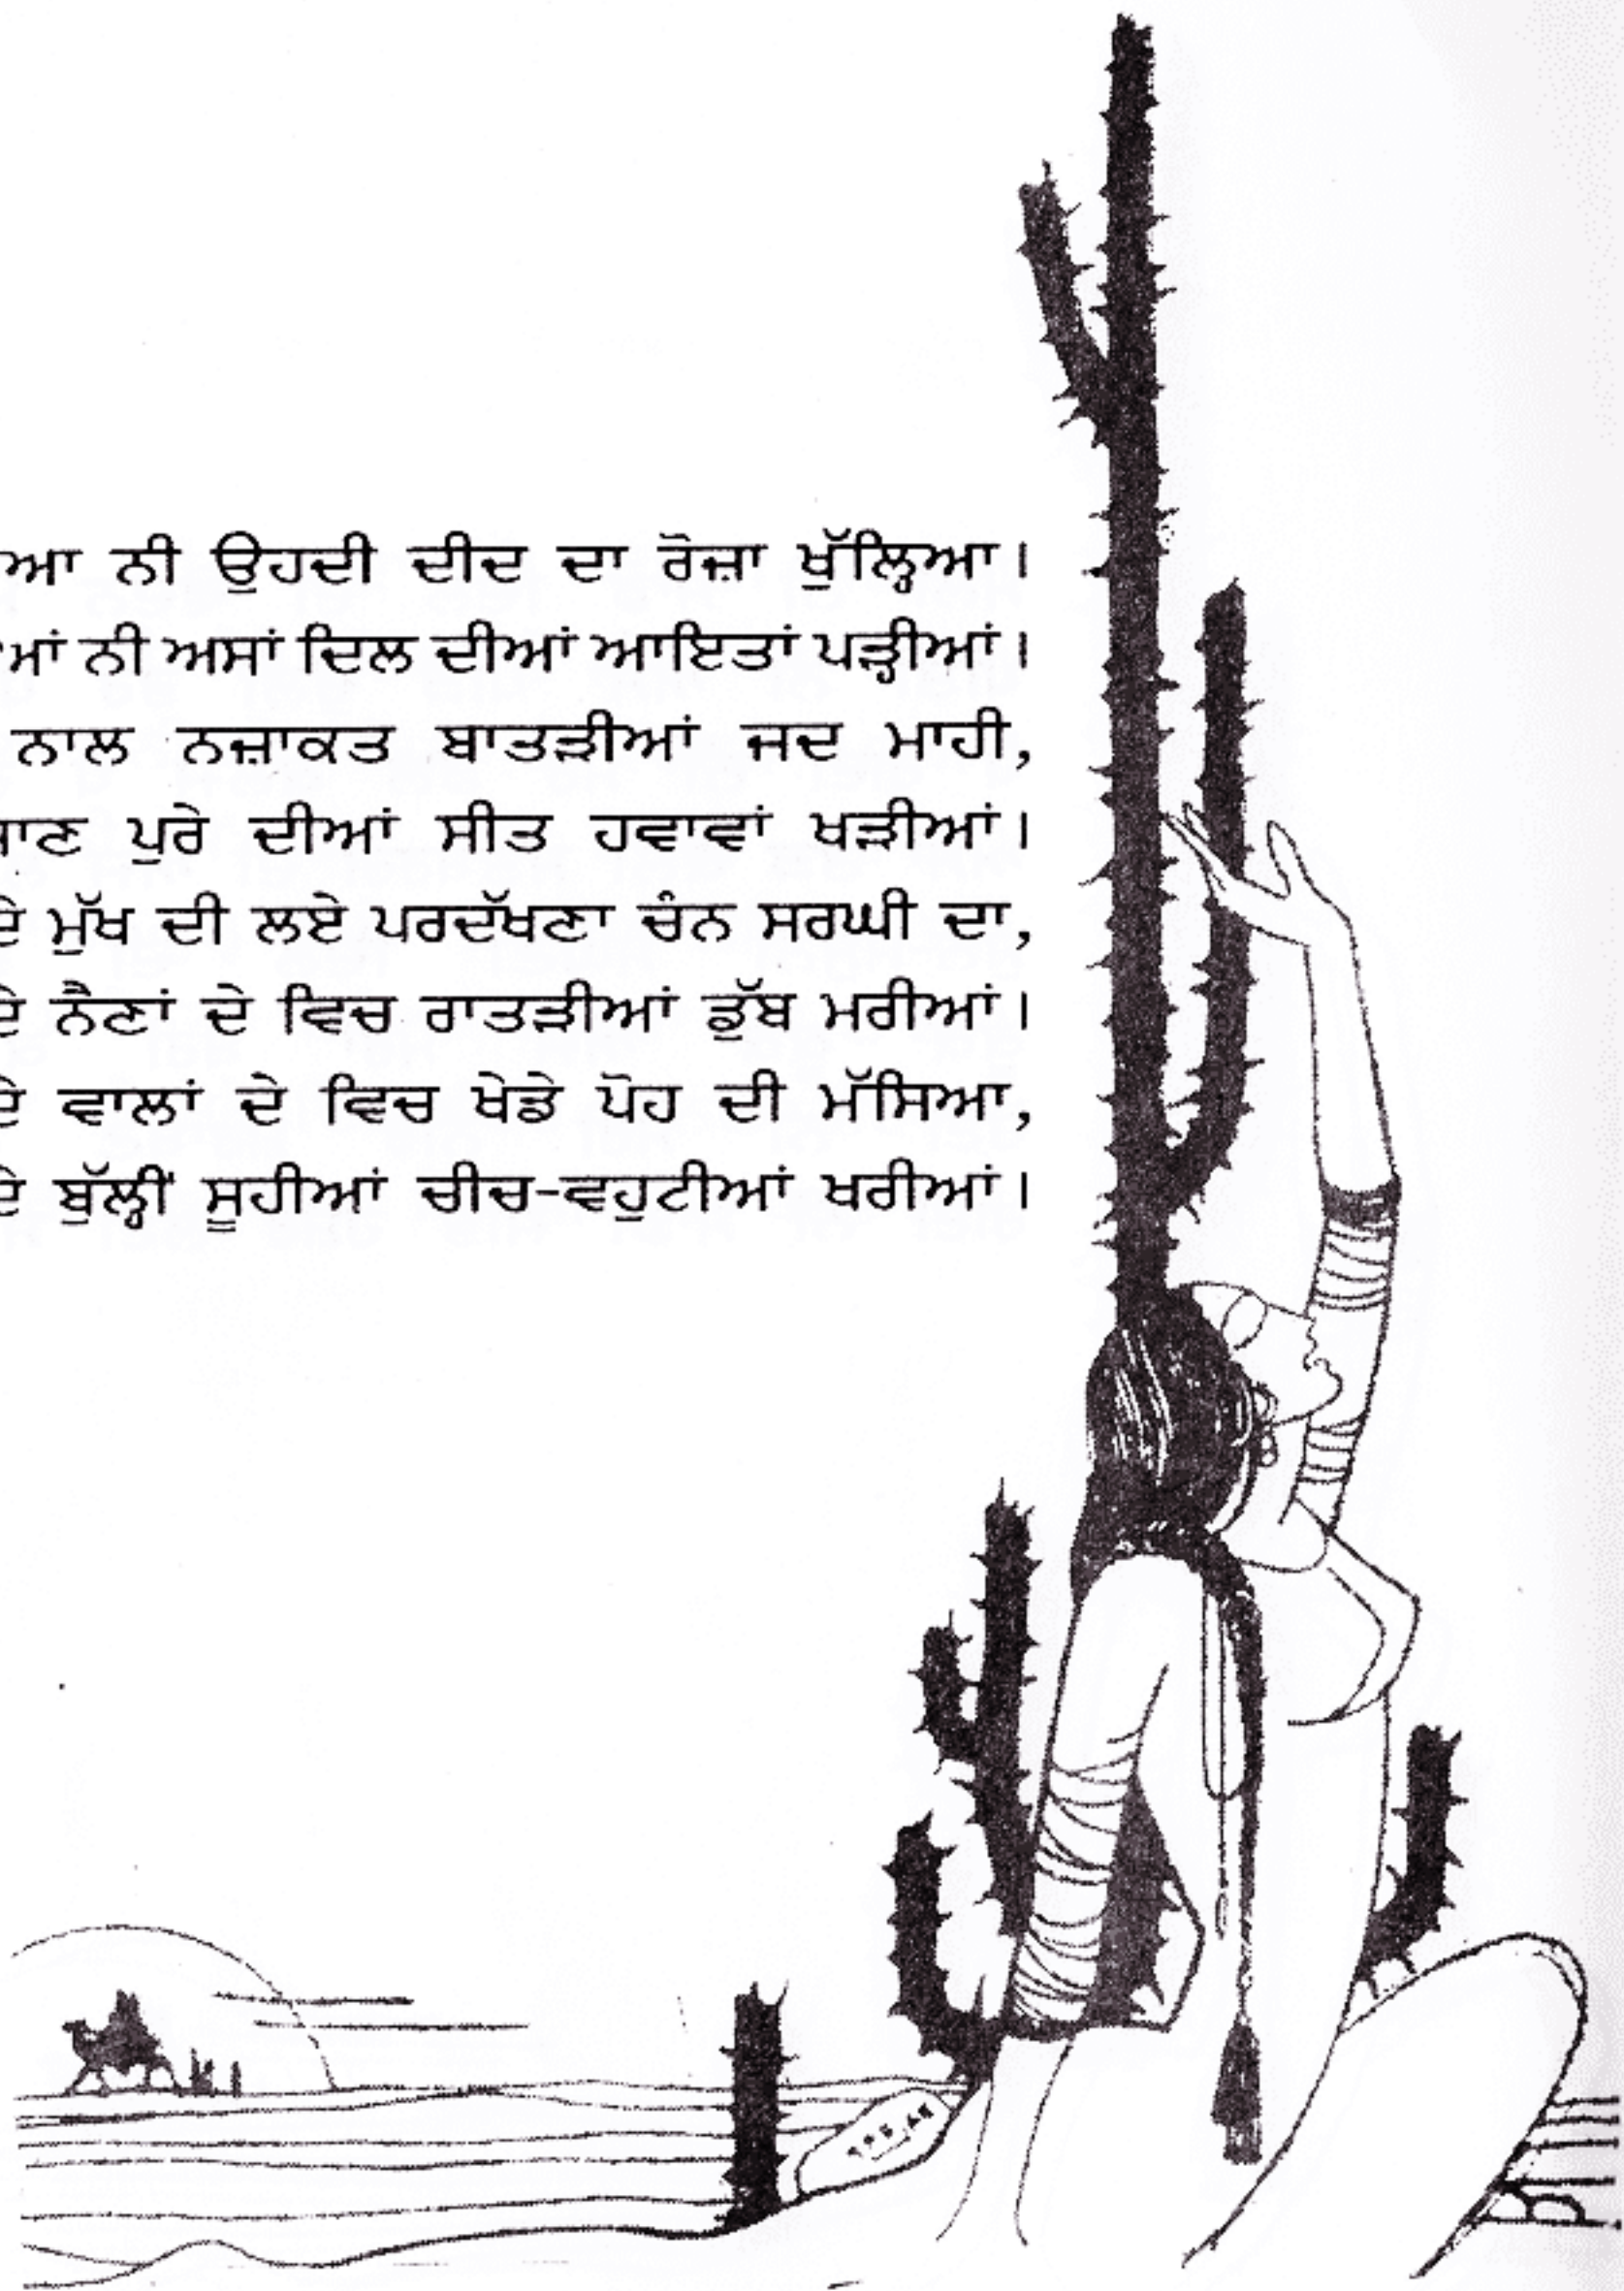 ਨੀ ਉਹਦੀ ਦੀਦ ਦਾ ਰੋਜ਼ਾ ਖੁੱਲ੍ਹਿਆ।
ਨੀ ਅਸਾਂ ਦਿਲ ਦੀਆਂ ਆਇਤਾਂ ਪੜ੍ਹੀਆਂ।
ਨਾਲ ਨਜ਼ਾਕਤ ਬਾਤੜੀਆਂ ਜਦ ਮਾਹੀ,
ਪੁਰੇ ਦੀਆਂ ਸੀਤ ਹਵਾਵਾਂ ਖੜੀਆਂ।
ਮੁੱਖ ਦੀ ਲਏ ਪਰਦੱਖਣਾ ਚੰਨ ਸਰਘੀ ਦਾ,
ਨੈਣਾਂ ਦੇ ਵਿਚ ਰਾਤੜੀਆਂ ਡੁੱਬ ਮਰੀਆਂ।
ਵਾਲਾਂ ਦੇ ਵਿਚ ਖੇਡੇ ਪੋਹ ਦੀ ਮੱਸਿਆ,
ਬੁੱਲ੍ਹੀਂ ਸੂਹੀਆਂ ਚੀਚ-ਵਹੁਟੀਆਂ ਖਰੀਆਂ।